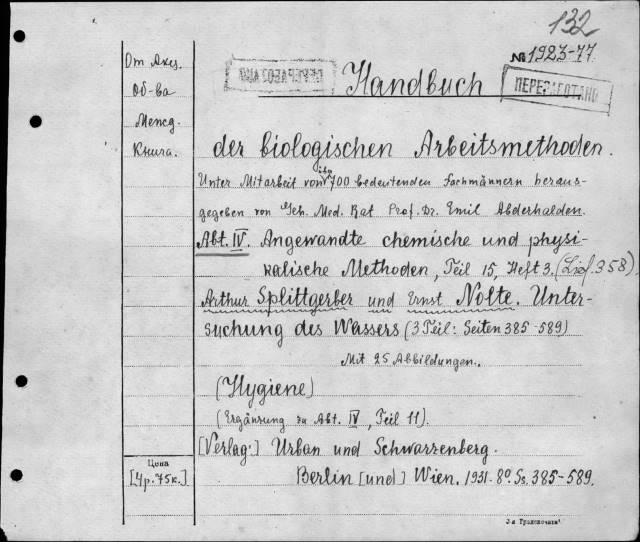 132
№ 1923-77.
ПЕРЕРАБОТАНО
ПЕРЕРАБОТАНО
От Акц.
Об-ва
Межд.
Книга.
Handbuch
der biologischen Arbeitsmethoden.
Unter Mitarbeit von über 700 bedeutenden Fachmännern heraus-
gegeben von Geh. Med. Rat Prof. Dr. Emil Abderhalden.
Abt. IV. Angewandte chemische und physi-
kalische Methoden, Teil 15, Heft 3. (Lief. 358)
Arthur Splittgerber und Ernst Nolte. Unter-
suchung des Wassers (3 Teil: Seiten 385-589)
Mit 25 Abbildungen.
(Hygiene)
(Ergänzung zu Abt. IV, Teil 11).
[Verlag:] Urban und Schwarzenberg.
Berlin [und] Wien. 1931. 8º. Ss. 385-589.
Цена
[4р. 75к.]